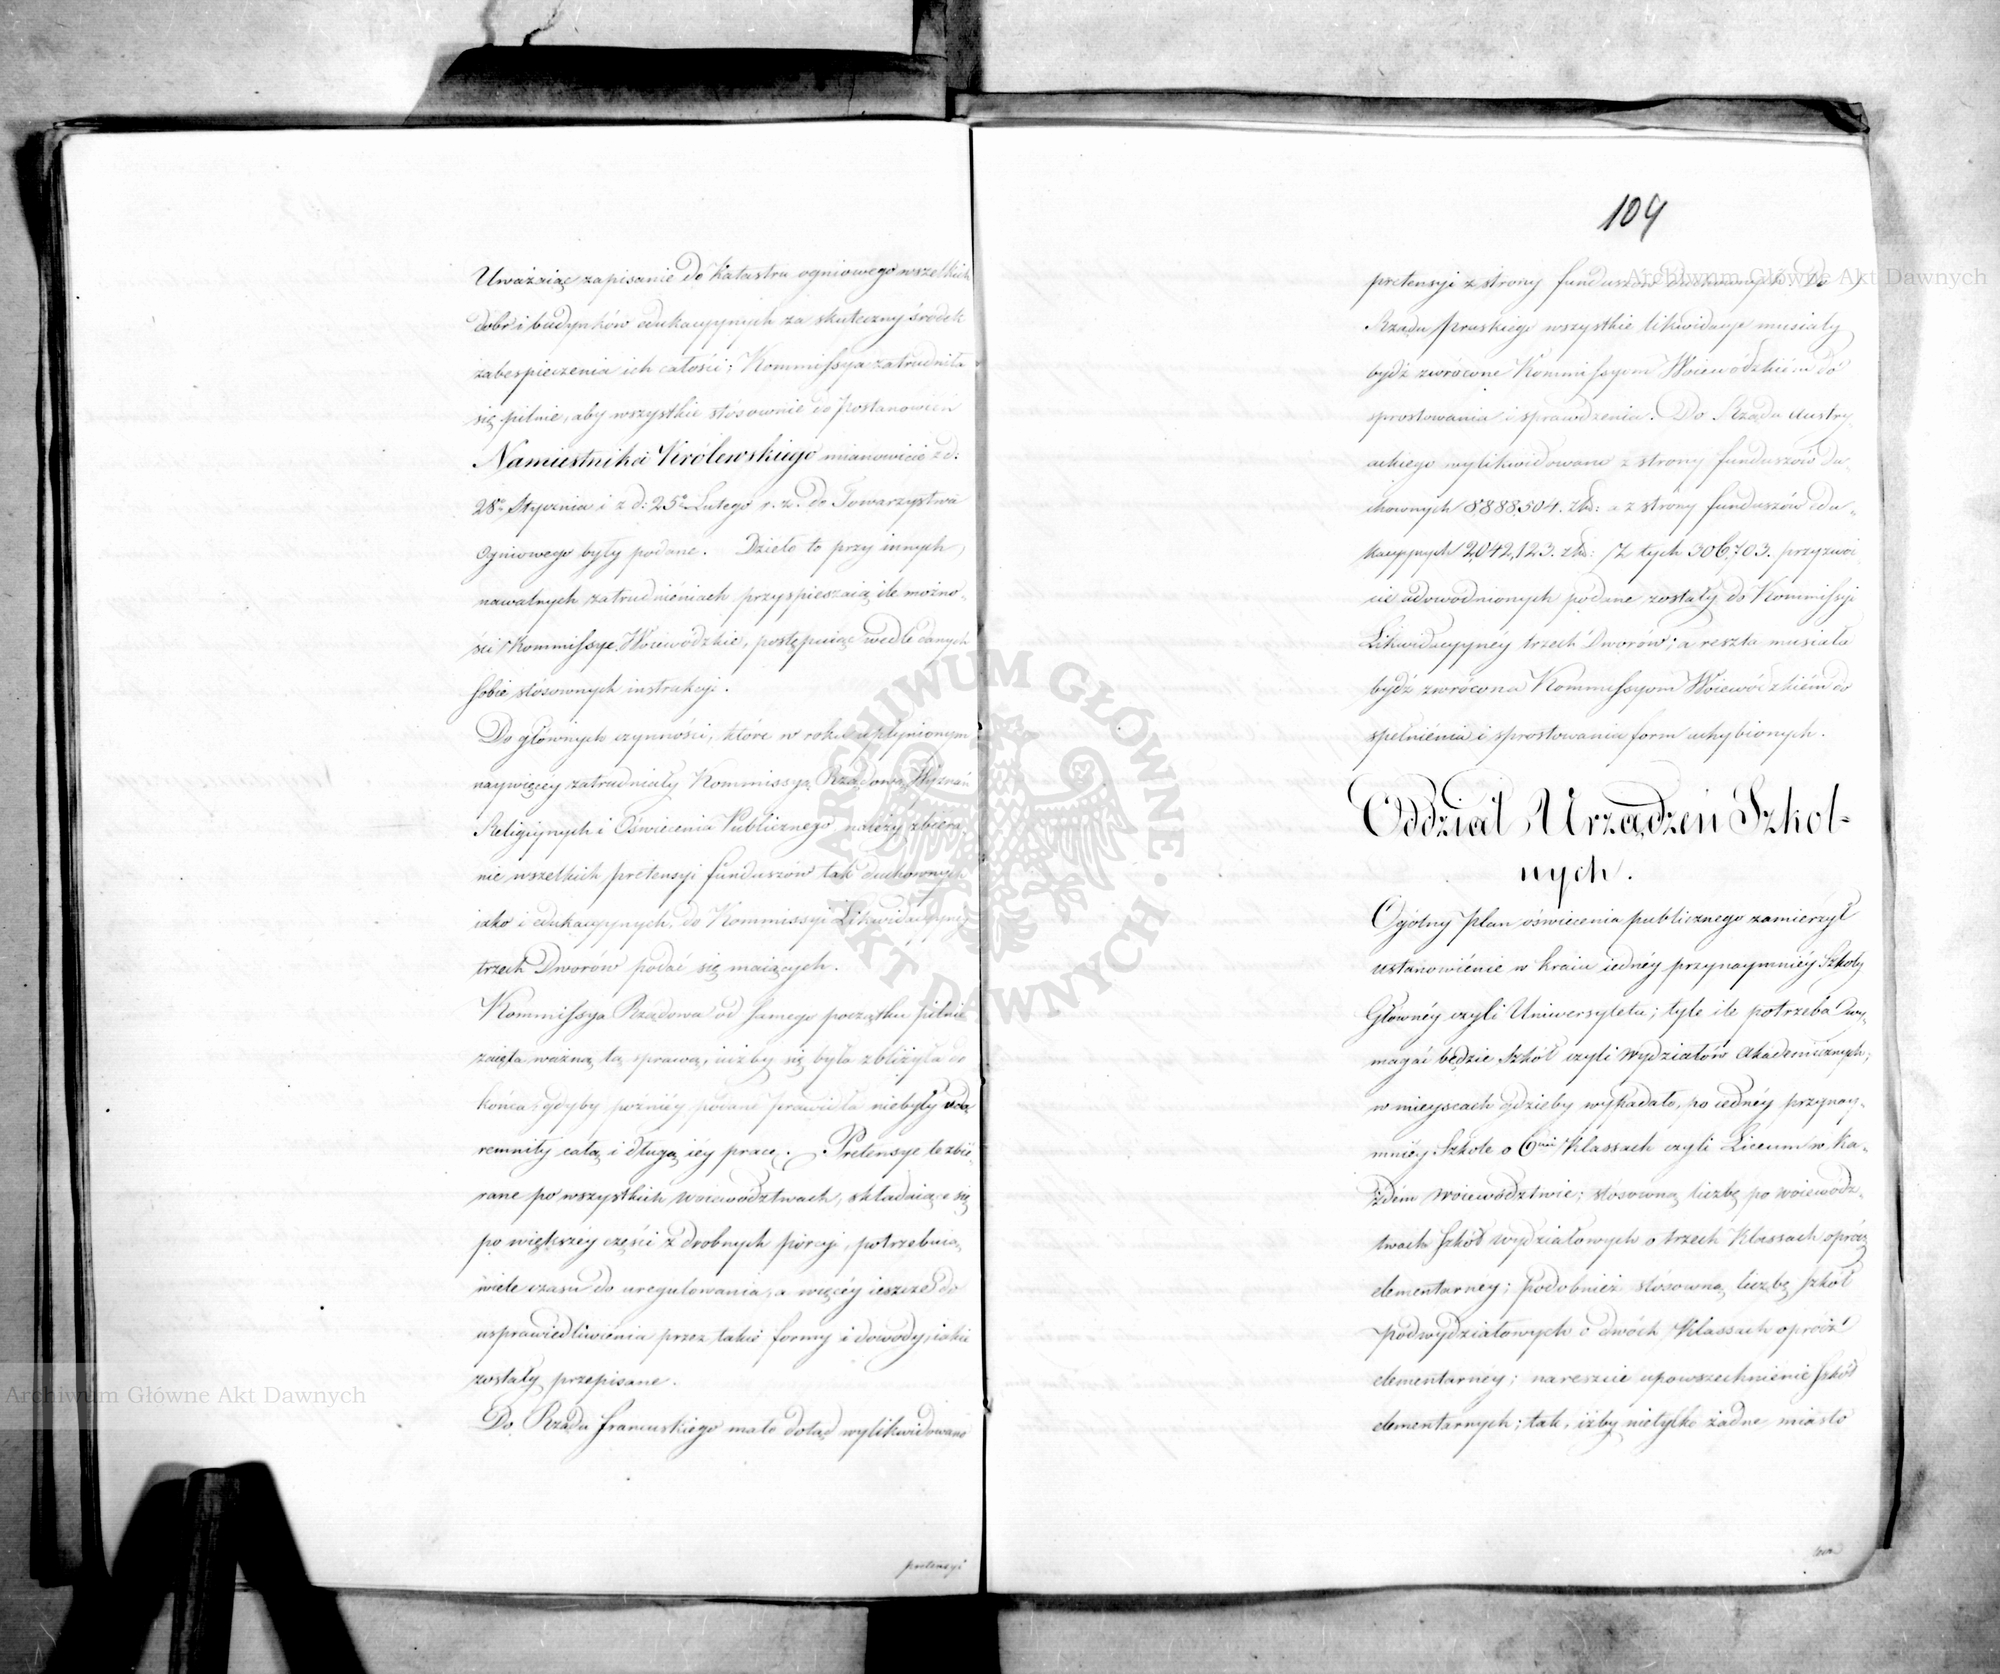 Uważaiąc zapisanie do Katastru ogniowego wszelkich
dóbr i budynków edukacyynych za skuteczny środek
zabespieczenia ich całości; Kommissya zatrudniła
się pilnie, aby wszystkie stósownie do Postanowień
Namiestnika Królewskiego mianowicie z d:
28º Stycznia i z d: 25º Lutego r. z. do Towarzystwa
Ogniowego były podane. Dzieło to przy innych,
nawalnych zatrudnieniach przyspieszaią ile możno-
ści Kommissye Woiewódzkie, postępuiąc wedle danych
sobie stósownych instrukcji.
Do głównych czynności, które w roku upłynionym
naywięcéy zatrudniały Kommissyą Rządową Wyznań
Religiynych i Oświecenia Publicznego należy zbiera-
nie wszelkich pretensyi funduszów tak duchownych
iako i edukacyynych, do Kommissyi Likwidacyynéy
trzech Dworów podać się maiących.
Kommissya Rządowa od samego początku pilnie
zaięta ważną tą sprawą, iużby się była zbliżyła do
końca; gdyby poźniéy podane prawidła niebyły uda-
remniły całą i długą iéy pracę. Pretensye te zbie-
rane po wszystkich woiewództwach, składaiące się
po większéy części z drobnych porcyi, potrzebuią
wiele czasu do uregulowania, a więcéy ieszcze do
usprawiedliwienia przez takie formy i dowody, iakie
zostały przepisane.
Do Rządu francuskiego mało dotąd wylikwidowano
pretensyi
104
pretensyi z strony funduszów duchownych. Do
Rządu Pruskiego wszystkie likwidacye musiały
bydź zwrócone Kommissyom Woiewódzkiém do
sprostowania i sprawdzenia. Do Rządu Austry
ackiego wylikwidowano z strony funduszów du-
chownych 8,888,504. złł: a z strony funduszów edu-
kacyynych 2,042,123. złł: Z tych 306,703. przyzwoi
cie udowodnionych podane zostały do Kommissyi
Likwidacyynéy trzech Dworów; a reszta musiała
bydź zwrócona Kommissyom Woiewódzkiém do
spełnienia i sprostowania form uchybionych.
Oddział Urządzeń Szkol-
nych.
Ogólny Plan oświecenia publicznego zamierzył
ustanowienie w kraiu iednéy przynaymniéy Szkoły
Głównéy czyli Uniwersytetu; tyle ile potrzeba wy-
magać będzie Szkół czyli Wydziałów Akademicznych,
w mieyscach gdzieby wypadało, po iednéy przynay-
mniéy Szkole o 6ciu Klassach czyli Liceum w ka-
żdém Woiewództwie; stósowną liczbę po Woiewódz-
twach Szkół Wydziałowych o trzech Klassach oprócz
elementarnéy; podobnież stósowną liczbę Szkół
Podwydziałowych o dwóch Klassach oprócz
elementarnéy; nareszcie upowszechnienie Szkół
elementarnych; tak, iżby nietylko żadne miasto
lecz
Archiwum Główne Akt Dawnych
ARCHIWUM GŁÓWNE AKT DAWNYCH
Archiwum Główne Akt Dawnych